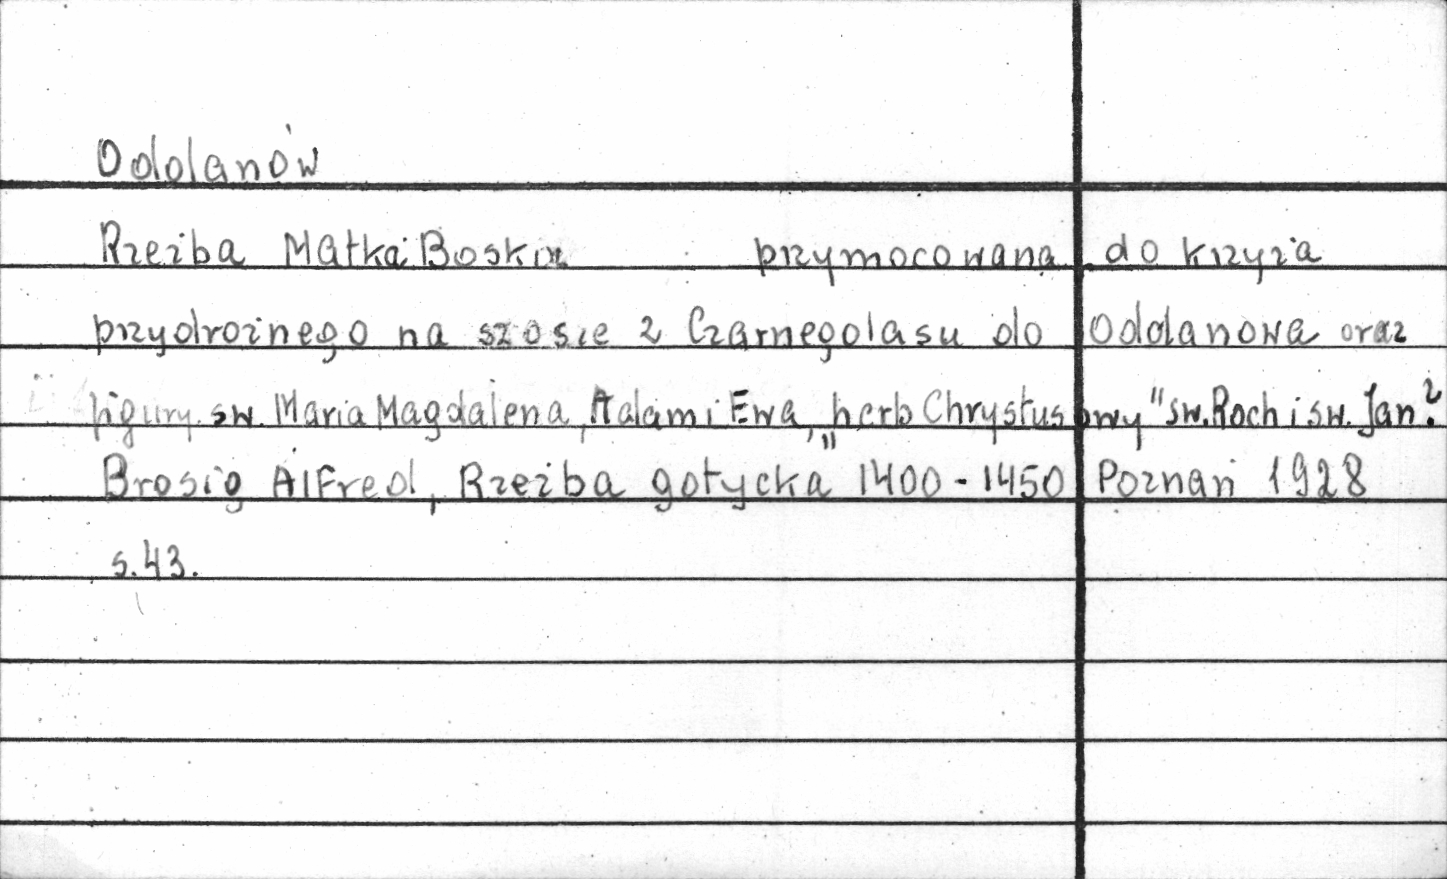 Odolanów
Rzeźba Matka Boska przymocowana do krzyża
przydrożnego na szosie z Czarnegolasu do Odolanowa oraz
figury św. Maria Magdalena, Adam i Ewa, „herb Chrystusowy" św. Roch i św. Jan?
Brosig Alfred, Rzeźba gotycka" 1400 - 1450 Poznań 1928
s. 43.